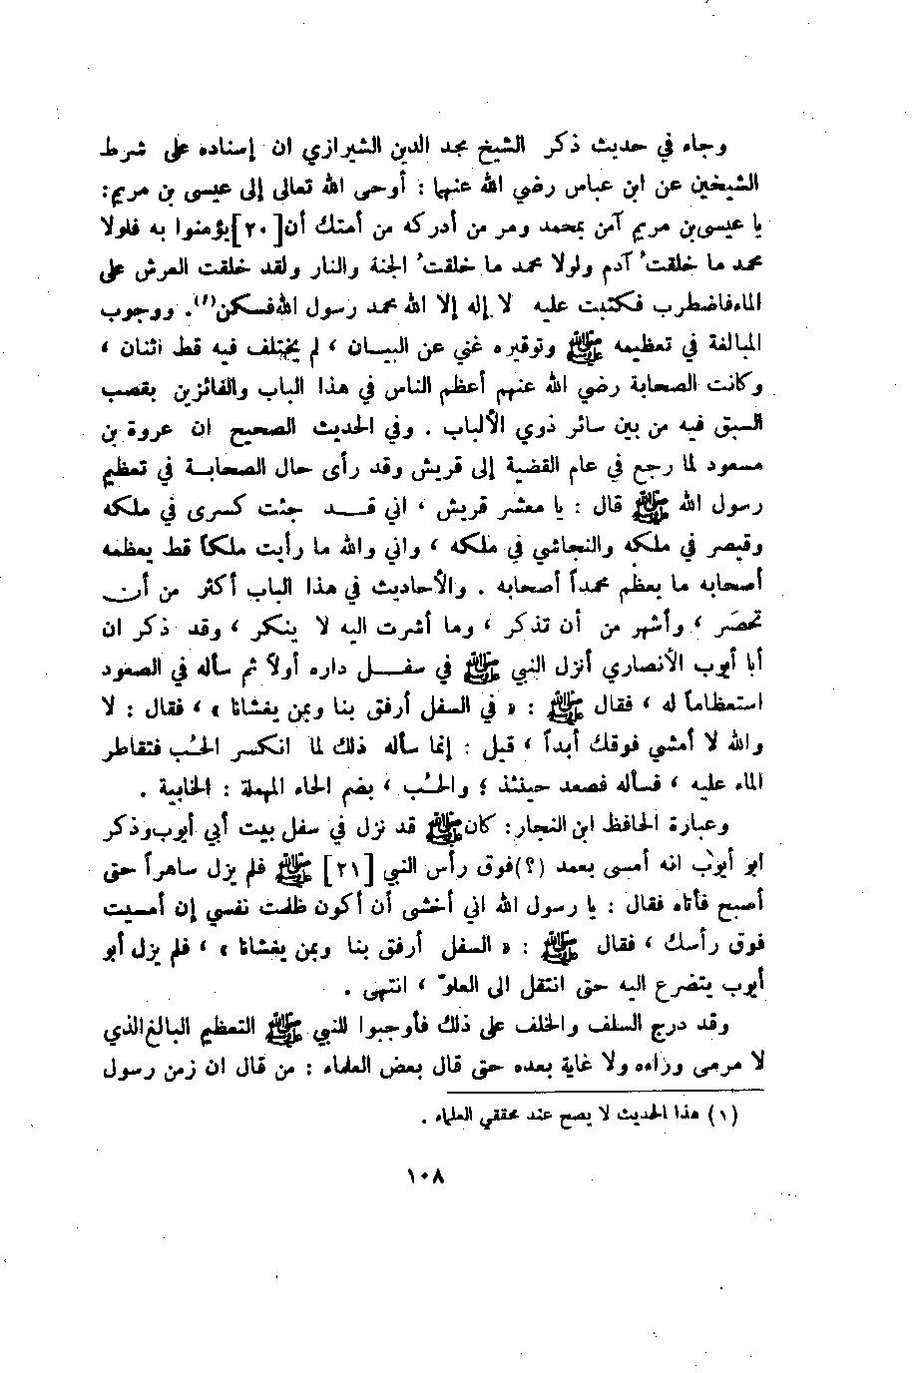 وجاء في حديث ذكر الشيخ مجد الدين الشيرازي ان إسناده على شرط
الشيخين عن ابن عباس رضي الله عنهما : أوحى الله تعالى إلى عيسى بن مريم:
يا عيسى بن مريم آمن بمحمد ومر من أدركه من أمتك أن[٢٠]يؤمنوا به فلولا
محمد ما خلقتُ آدم ولولا محمد ما خلقتُ الجنة والنار ولقد خلقت العرش على
الماء فاضطرب فكتبت عليه لا إله إلا الله محمد رسول الله فسكن(١). ووجوب
المبالغة في تعظيمه ﷺ وتوقيره غني عن البيـان ، لم يختلف فيه قط اثنان ،
وكانت الصحابة رضي الله عنهم أعظم الناس في هذا الباب والفائزين بقصب
السبق فيه من بين سائر ذوي الألباب . وفي الحديث الصحيح ان عروة بن
مسعود لما رجع في عام القضية إلى قريش وقد رأى حال الصحابـة في تعظيم
رسول الله ﷺ قال : يا معشر قريش ، اني قــد جئت كسرى في ملكه
وقيصر في ملكه والنجاشي في ملكه ، واني والله ما رأيت ملكاً قط يعظمه
أصحابه ما يعظم محمداً أصحابه . والأحاديث في هذا الباب أكثر من أن
تحصَر ، وأشهر من أن تذكر ، وما أشرت اليه لا ينكر ، وقد ذكر ان
أبا أيوب الأنصاري أنزل النبي ﷺ في سفــل داره أولاً ثم سأله في الصعود
استعظاماً له ، فقال ﷺ : « في السفل أرفق بنا وبمن يغشانا » ، فقال : لا
والله لا أمشي فوقك أبداً ، قيل : إنما سأله ذلك لما انكسر الحُب فتقاطر
الماء عليه ، فسأله فصعد حينئذ ؛ والحُب ، بضم الحاء المهملة : الخابية .
وعبارة الحافظ ابن النجار: كان ﷺ قد نزل في سفل بيت أبي أيوب وذكر
ابو أيوب انه أمسى بعمد (؟)فوق رأس النبي [٢١] ﷺ فلم يزل ساهراً حتى
أصبح فأتاه فقال : يا رسول الله اني أخشى أن أكون ظلمت نفسي إن أمسيت
فوق رأسك ، فقال ﷺ : « السفل أرفق بنا وبمن يغشانا » ، فلم يزل أبو
أيوب يتضرع اليه حتى انتقل الى العلوّ ، انتهى .
وقد درج السلف والخلف على ذلك فأوجبوا للنبي ﷺ التعظيم البالغ الذي
لا مرمى وراءه ولا غاية بعده حتى قال بعض العلماء : من قال ان زمن رسول
(١) هذا الحديث لا يصح عند محققي العلماء .
١٠٨